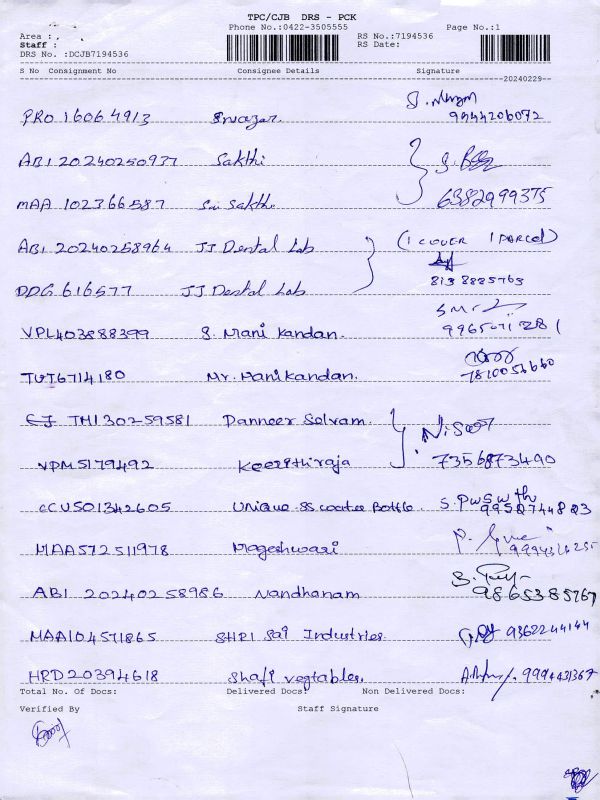 TPC/CJB DRS - PCK
Phone No.:0422-3505555 Page No.:1
Area : RS No.:7194536
Staff : RS Date:
DRS No. :DCJB7194536
S No Consignment No Consignee Details Signature
20240229
PRO 16064913 9444206072
ABI 20240250977 Sakthi
MAA 102366587 Sri Sakthi 6382999375
ABI 20240258964 JJ Dental Lab (1 COVER 1 PARCEL)
DDG 616577 JJ Dental Lab 813 8885763
VPL403888399 S. Mani Kandan.
TUT6714180 Mr. Manikandan. 7810056660
TMI30259581 Panneer Selvam.
VPM5179492 Keerithiraja 7356873490
CCU501342605 Unique SS Water Bottle
MAA572511978 Mageshwari
ABI 20240258986 Nandhanam 9865385767
MAA104571865 SHRI Sai Industries 9362244144
HRD20394618 Shafi vegtables. 9994431367
Total No. Of Docs: Delivered Docs: Non Delivered Docs:
Verified By Staff Signature